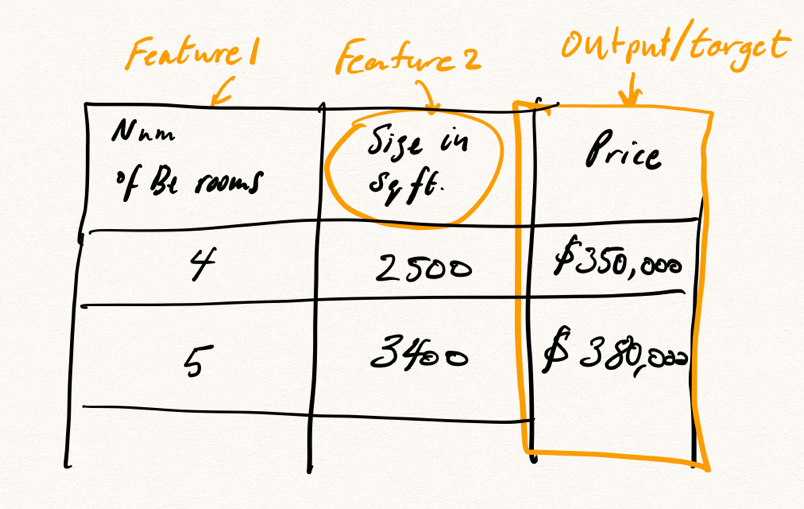 Feature 1
Feature 2
Output/target
Num
of Be rooms
Size in
sqft.
Price
4
2500
$350,000
5
3400
$380,000